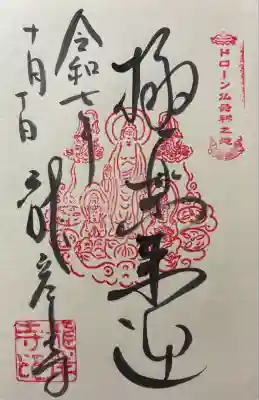 ドローン仏発祥之地
極楽来迎
令和七年
十月日
龍岸寺
龍岸寺印